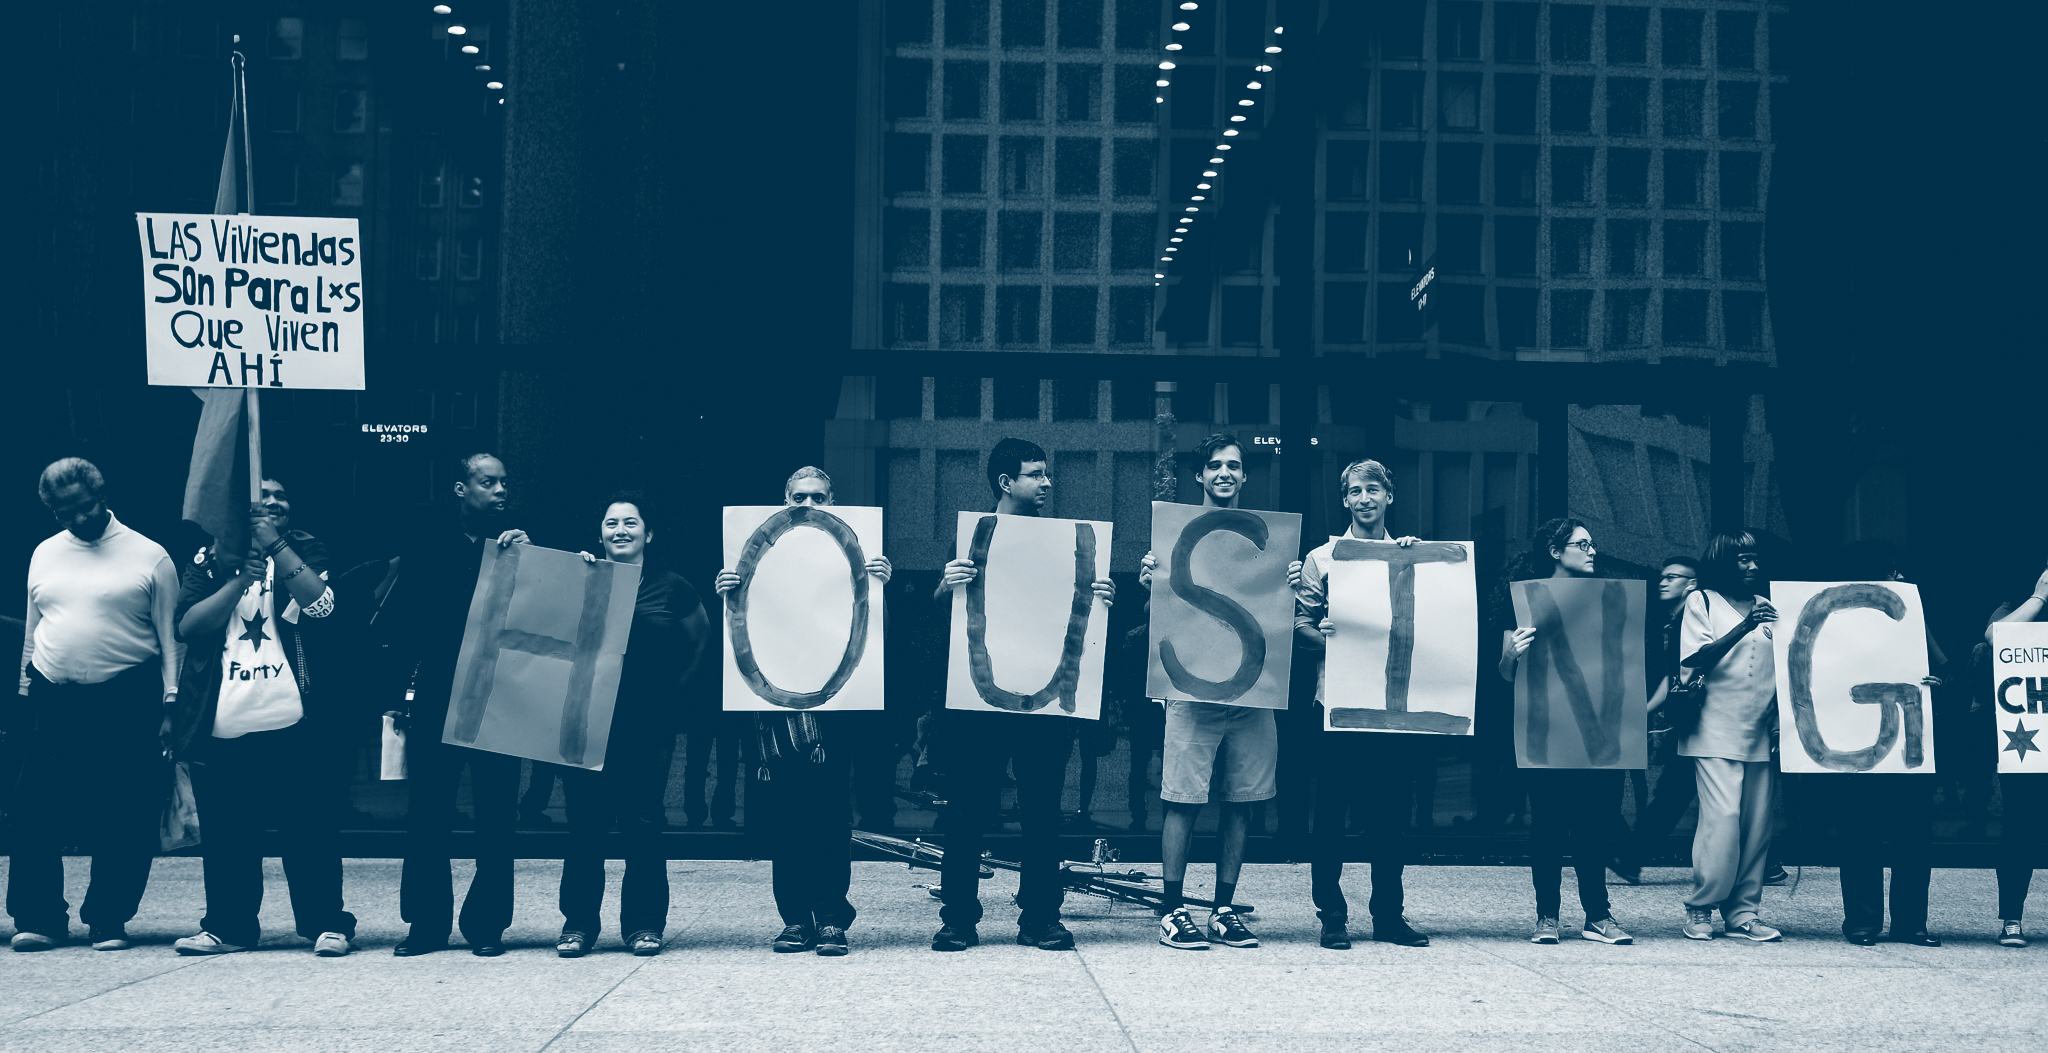 LAS ViViendas
Son Para Lxs
Que Viven
AHÍ
ELEVATORS
23-30
ELEVATORS
Party
H O U S I N G
GENTR
CH